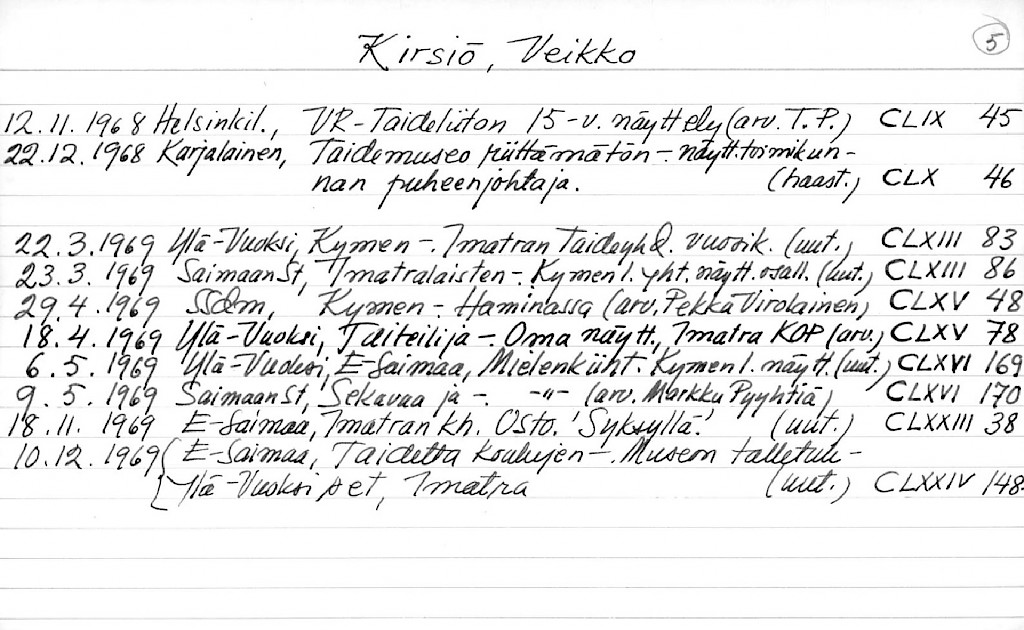 Kirsiö, Veikko
5
12.11.1968 Helsinkil., VR-Taideliiton 15-v. näyttely (arv. T.P.) CLIX 45
22.12.1968 Karjalainen, Taidemuseo riittämätön-. näytt.toimikun-
nan puheenjohtaja. (haast.) CLX 46
22.3.1969 Ylä-Vuoksi, Kymen-. Imatran Taideyhd. vuosik. (uut.) CLXIII 83
23.3.1969 SaimaanSt, Imatralaisten-. Kymen l. yht. näytt. osall. (uut.) CLXIII 86
29.4.1969 Kymen-. Haminassa (arv. Pekka Virolainen) CLXV 48
18.4.1969 Ylä-Vuoksi, Taiteilija-. Oma näytt., Imatra KOP (arv.) CLXV 78
6.5.1969 Ylä-Vuoksi, E-Saimaa, Mielenkiint. Kymen l. näytt. (uut.) CLXVI 169
9.5.1969 SaimaanSt, Sekavaa ja -. -"- (arv. Markku Pyyhtiä) CLXVI 170
18.11.1969 E-Saimaa, Imatran kh. Osto. 'Syksyllä.' (uut.) CLXXIII 38
10.12.1969 { E-Saimaa, Taidetta koulujen-. Museon talletuk-
Ylä-Vuoksi set, Imatra (uut.) CLXXIV 148